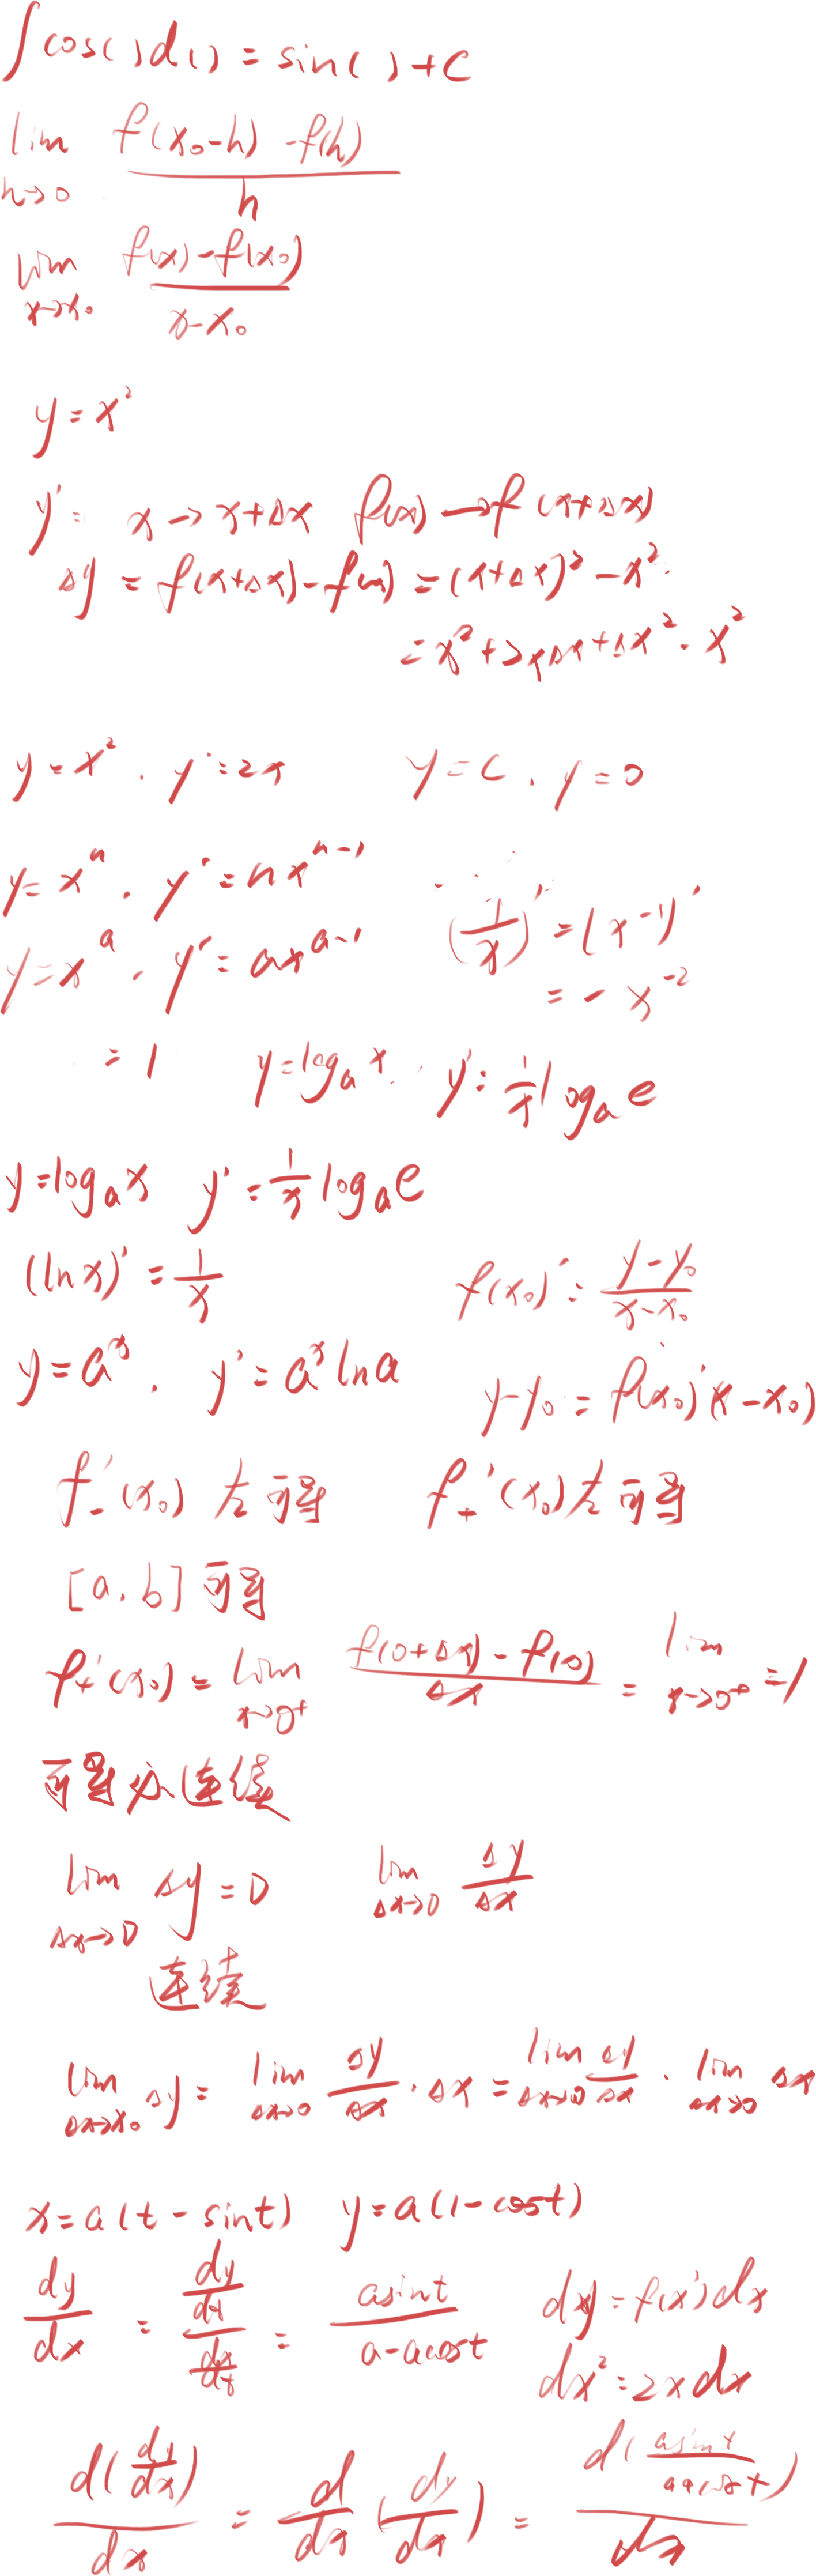 ∫cos( )d( ) = sin( ) + C
lim h→0 (f(x₀-h) - f(h))/h
lim x→x₀ (f(x) - f(x₀))/(x-x₀)
y = x²
y' = x → x+Δx f(x) → f(x+Δx)
Δy = f(x+Δx) - f(x) = (x+Δx)² - x²
= x² + 2xΔx + Δx² - x²
y = x² , y' = 2x y = C , y = 0
y = xⁿ , y' = nxⁿ⁻¹
(1/x)' = (x⁻¹)'
y = xᵃ , y' = axᵃ⁻¹
= -x⁻²
= 1 y = logₐx , y' = 1/x logₐe
y = logₐx y' = 1/x logₐe
(ln x)' = 1/x f(x₀)' = (y-y₀)/(x-x₀)
y = aˣ , y' = aˣ ln a y-y₀ = f(x₀)'(x-x₀)
f₋'(x₀) 左可导 f₊'(x₀) 左可导
[a, b] 可导
f₊'(x₀) = lim x→0⁺ (f(0+Δx) - f(0))/Δx = lim x→0⁺ = 1
可导必连续
lim Δx→0 Δy = 0 lim Δx→0 Δy/Δx
连续
lim Δx→x₀ Δy = lim Δx→0 Δy/Δx · Δx = lim Δx→0 Δy/Δx · lim Δx→0 Δx
x = a(t - sint) y = a(1 - cost)
dy/dx = (dy/dt)/(dx/dt) = asint/(a-acost) dy = f(x')dx
dx² = 2xdx
d(dy/dx)/dx = d/dx (dy/dx) = d(asint/(a-acost))/dx